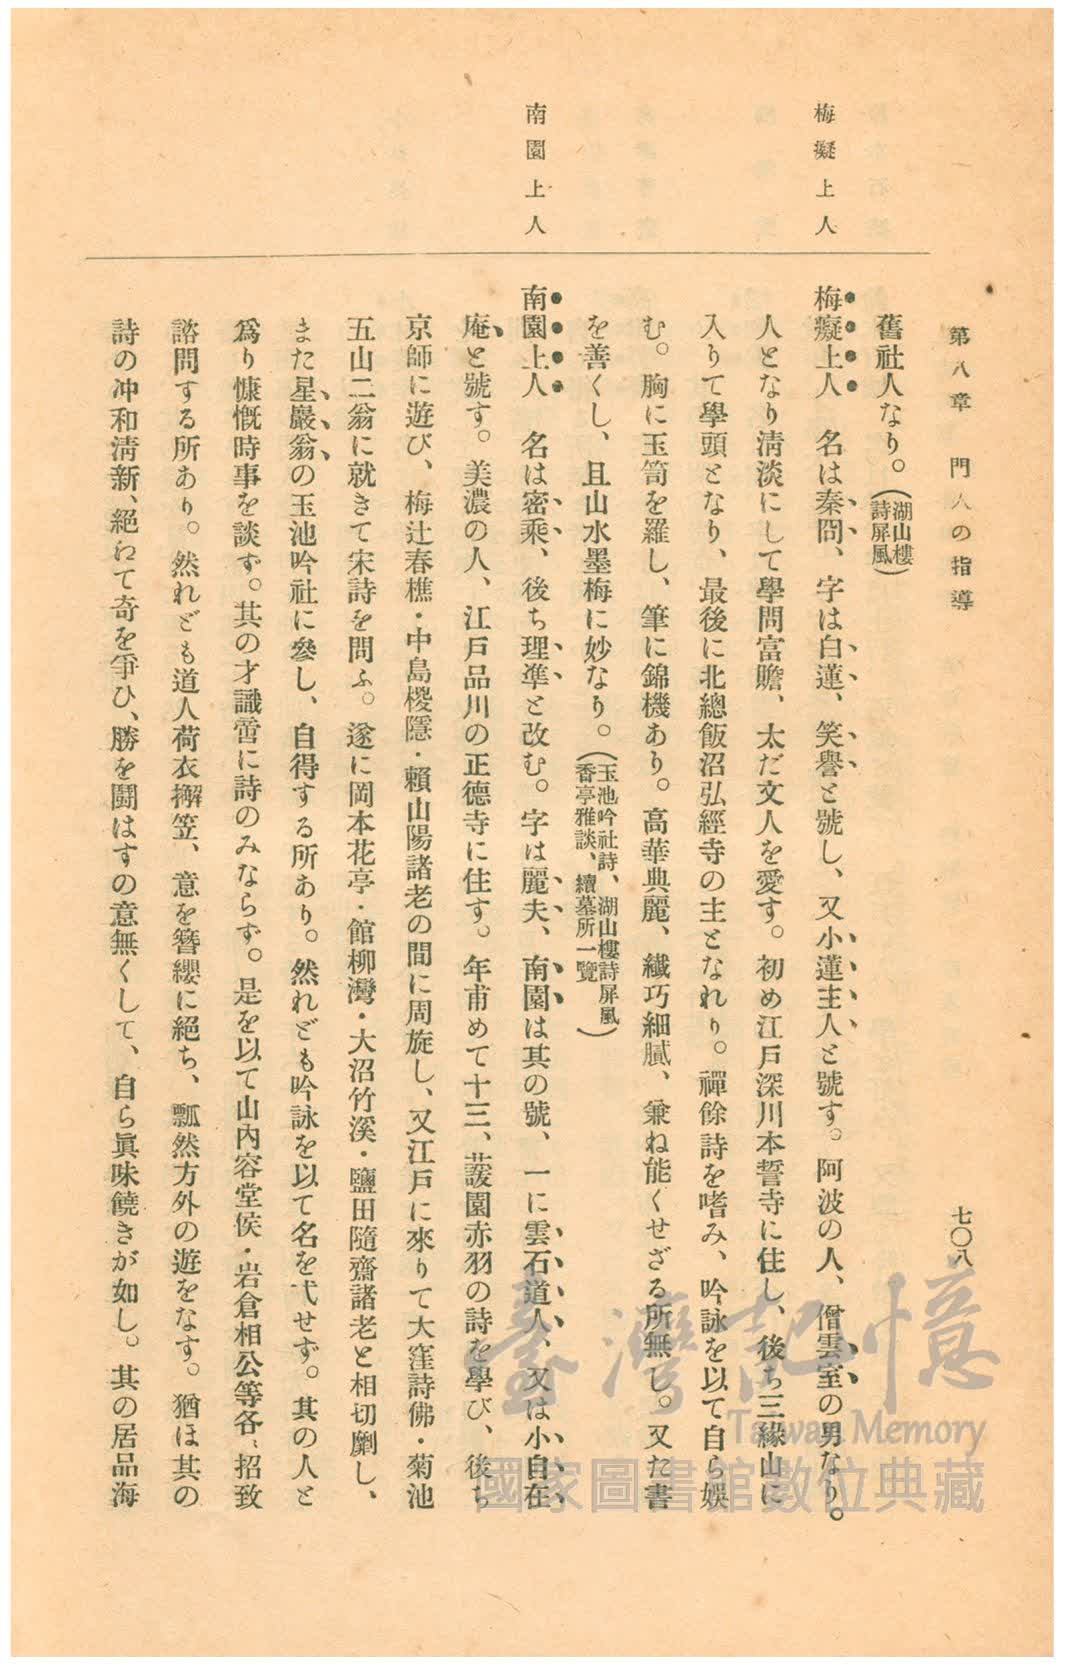 第八章　門人の指導
七〇八
梅癡上人
南園上人
舊社人なり。(湖山樓詩屏風)
梅癡上人　名は秦冏、字は白蓮、笑譽と號し、又小蓮主人と號す。阿波の人、僧雲室の男なり。
人となり淸淡にして學問富贍、太だ文人を愛す。初め江戸深川本誓寺に住し、後ち三緣山に
入りて學頭となり、最後に北總飯沼弘經寺の主となれり。禪餘詩を嗜み、吟詠を以て自ら娯
む。胸に玉笥を羅し、筆に錦機あり。高華典麗、纖巧細膩、兼ね能くせざる所無し。又た書
を善くし、且山水墨梅に妙なり。(玉池吟社詩、湖山樓詩屏風、香亭雅談、續墓所一覽)
南園上人　名は密乘、後ち理準と改む。字は麗夫、南園は其の號、一に雲石道人、又は小自在
庵と號す。美濃の人、江戸品川の正德寺に住す。年甫めて十三、蘐園赤羽の詩を學び、後ち
京師に遊び、梅辻春樵・中島椶隱・賴山陽諸老の間に周旋し、又江戸に來りて大窪詩佛・菊池
五山二翁に就きて宋詩を問ふ。遂に岡本花亭・館柳灣・大沼竹溪・鹽田隨齋諸老と相切劘し、
また星巖翁の玉池吟社に參し、自得する所あり。然れども吟詠を以て名を弋せず。其の人と
爲り慷慨時事を談ず。其の才識啻に詩のみならず。是を以て山内容堂侯・岩倉相公等各〻招致
諮問する所あり。然れども道人荷衣擲笠、意を簪纓に絕ち、瓢然方外の遊をなす。猶ほ其の
詩の冲和淸新、絕ゎて奇を爭ひ、勝を鬪はすの意無くして、自ら眞味饒きが如し。其の居品海
臺灣記憶
Taiwan Memory
國家圖書館數位典藏